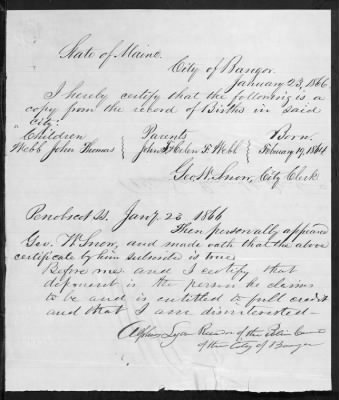 State of Maine.
City of Bangor.
January 23, 1866
I hereby certify that the following is a
copy from the record of Births in said
city:
Children Parents Born.
Webb John Thomas } John & Helen F Webb } February 19, 1864
Geo W. Snow, City Clerk
Penobscot SS. Jany. 23 1866
Then personally appeared
Geo. W Snow, and made oath that the above
certificate by him subscribed is true
Before me and I certify that
deponent is the person he claims
to be and is entitled to full credit
and that I am disinterested—
Lyon of the Police Court
of the City of Bangor